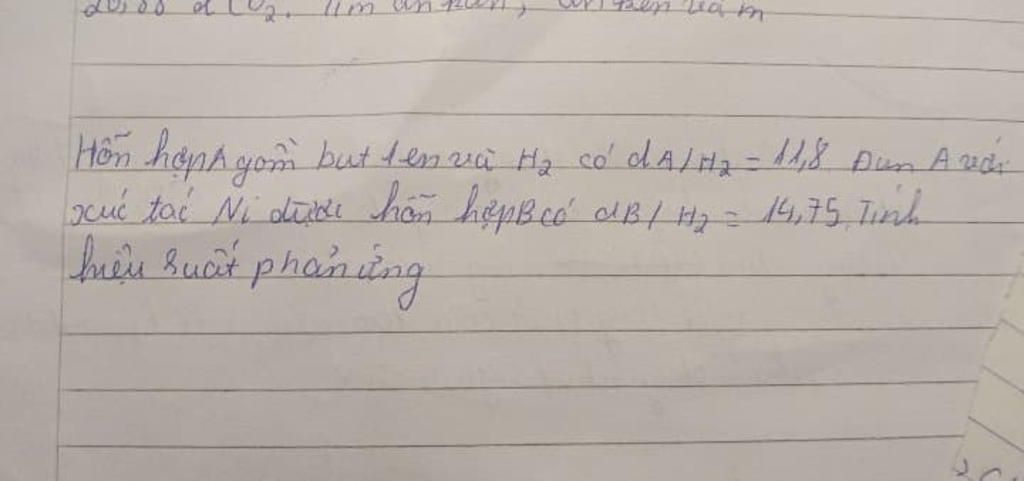 Hỗn hợp A gồm but 1 en và H2 có dA/H2 = 11,8 Đun A với
xúc tác Ni được hỗn hợp B có dB/H2 = 14,75. Tính
hiệu suất phản ứng